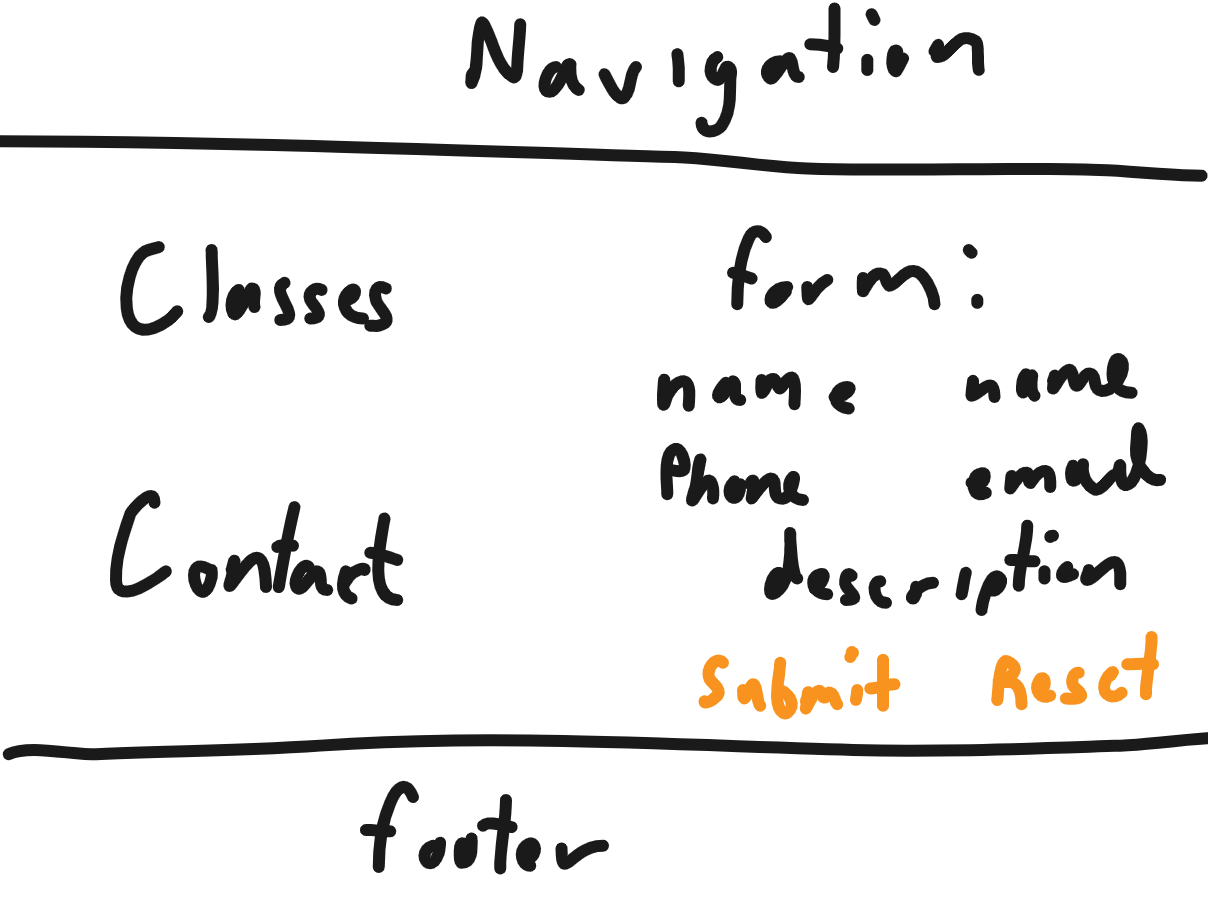 Navigation
Classes
Contact
form:
name name
Phone email
description
Submit Reset
footer